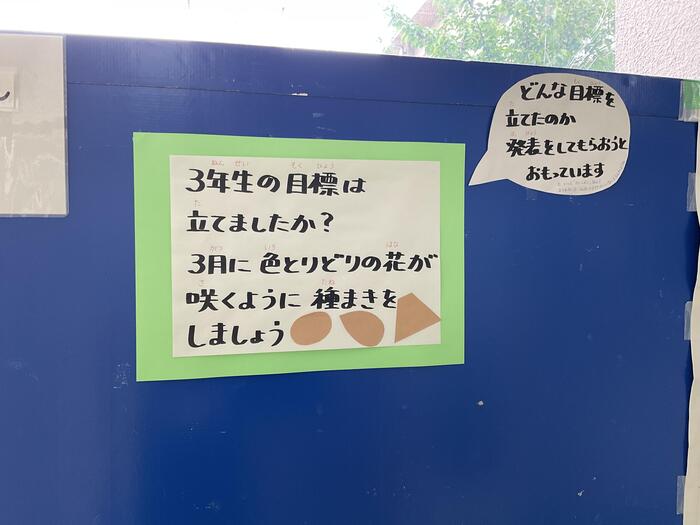 3年生の目標は
立てましたか？
3月に色とりどりの花が
咲くように種まきを
しましょう
どんな目標を
立てたのか
発表をしてもらおうと
おもっています